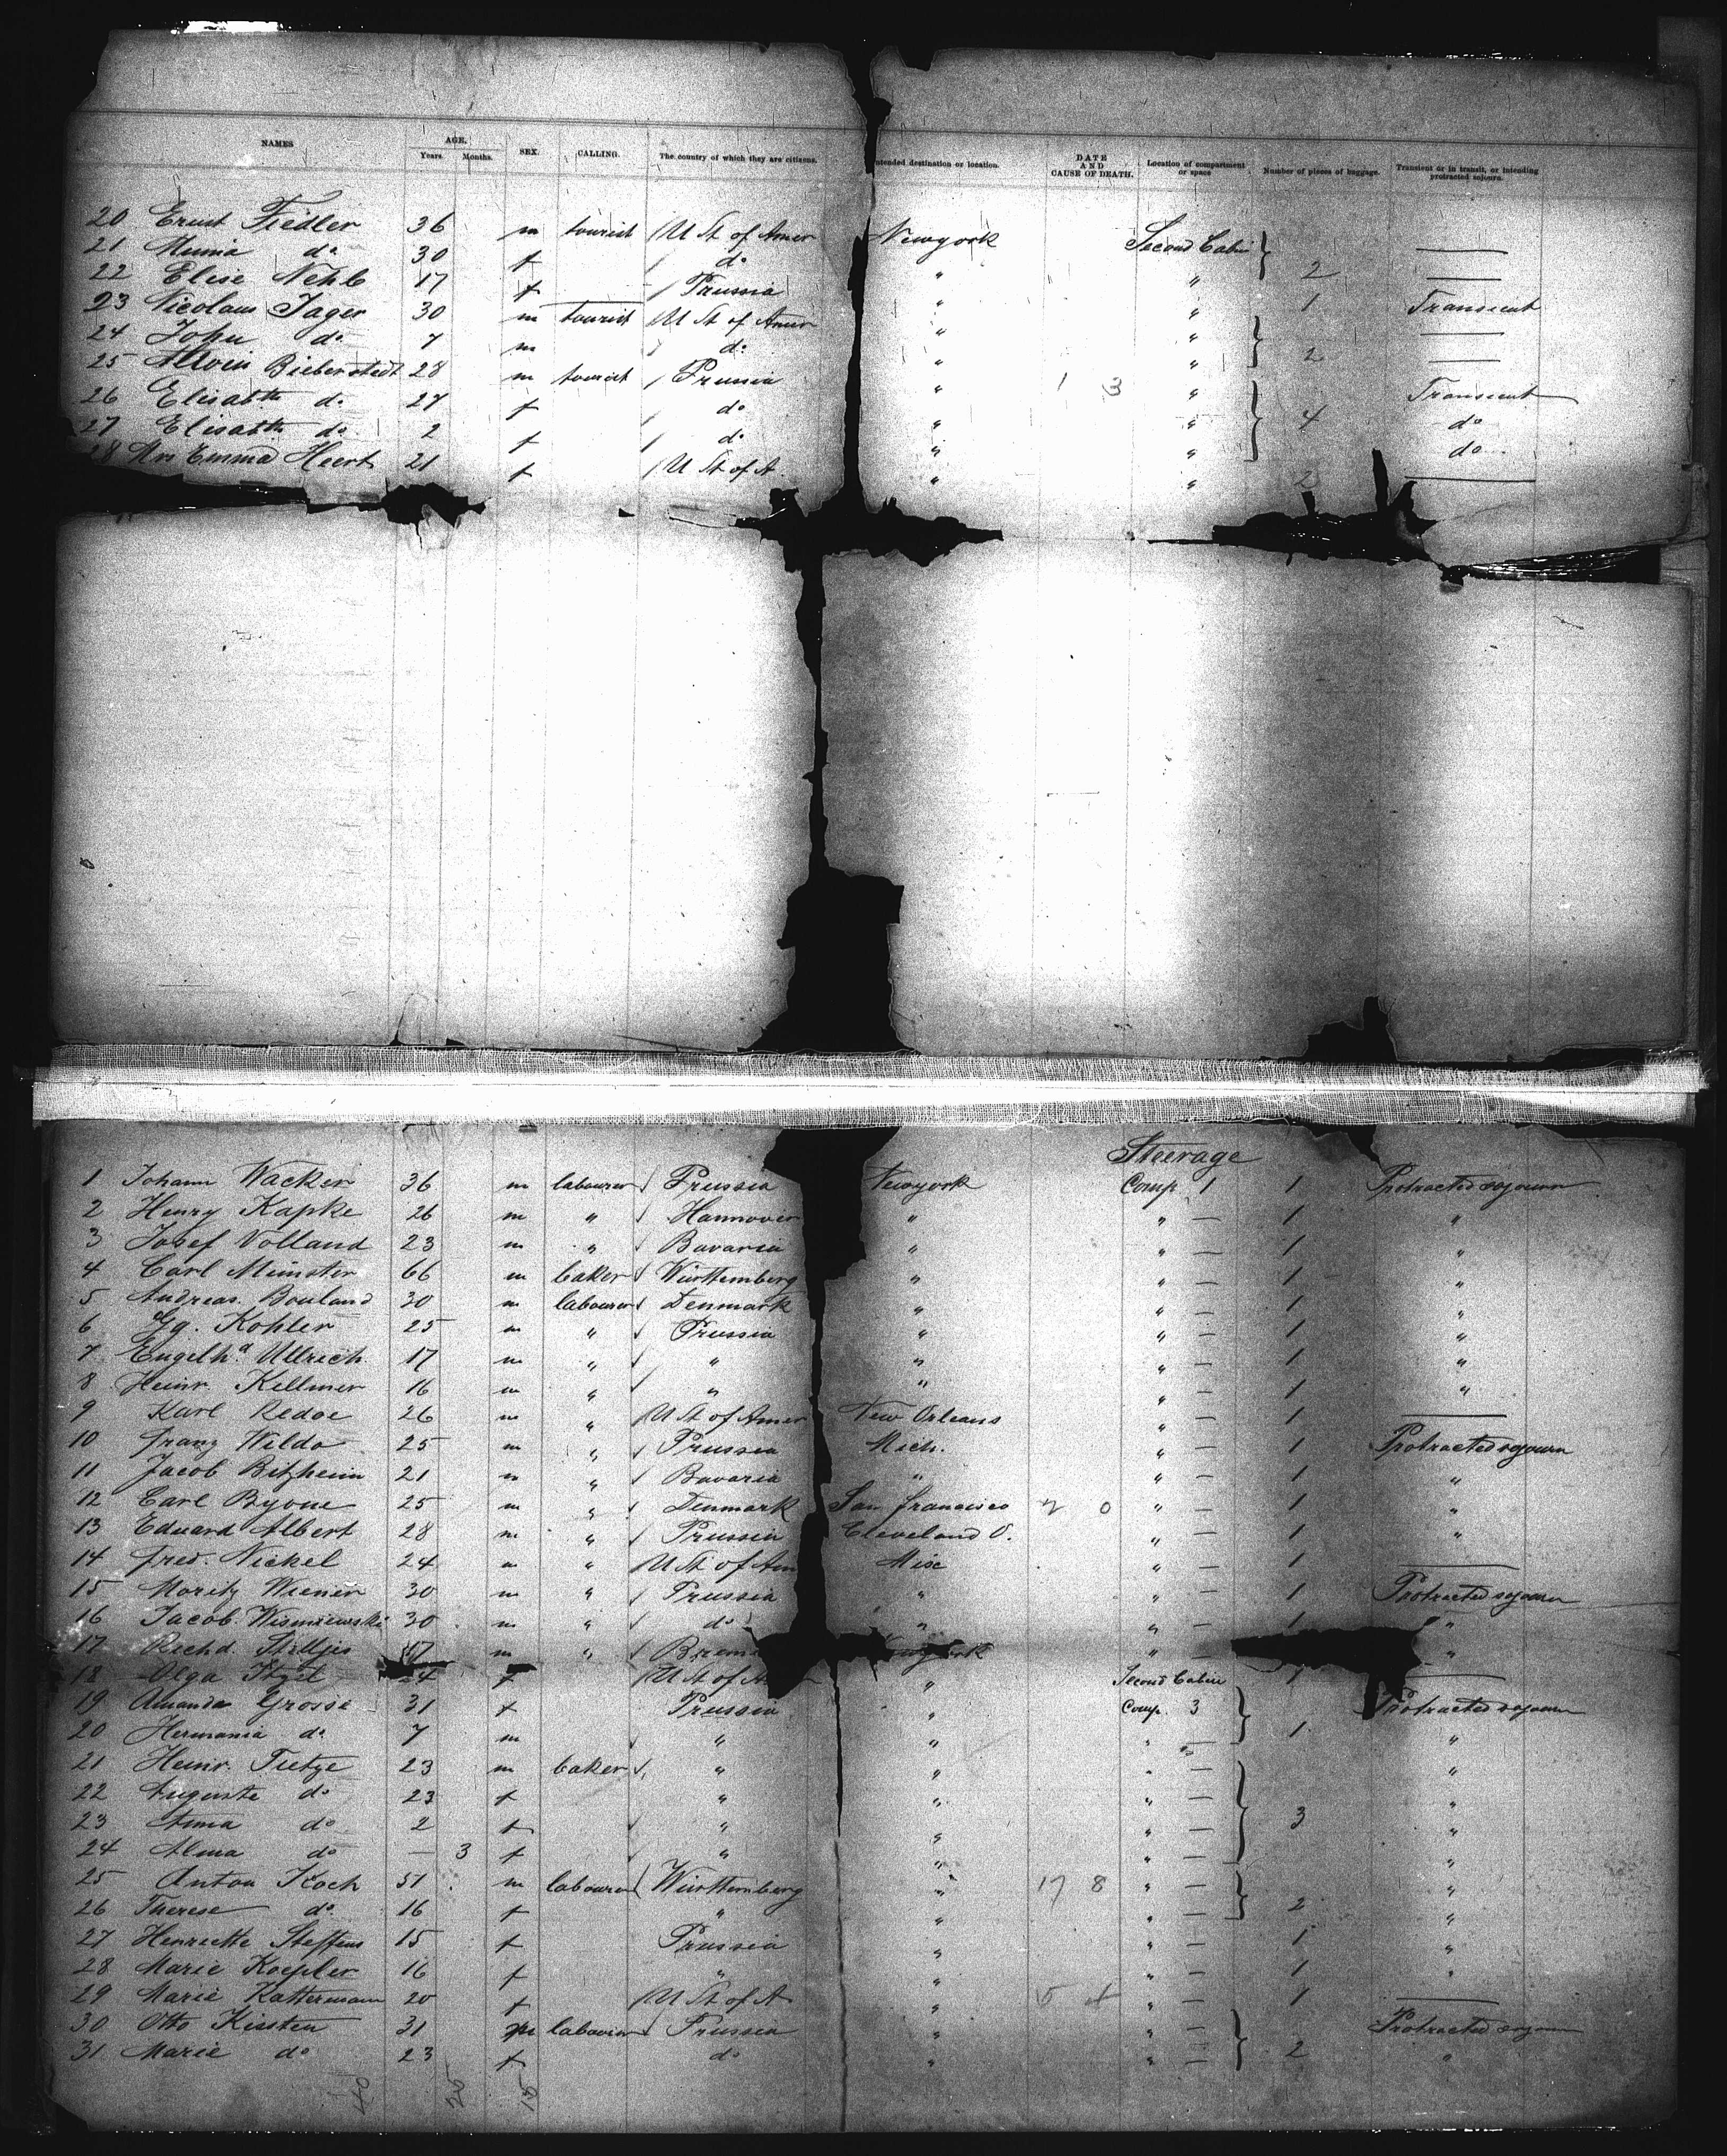 NAMES AGE. Years. Months. SEX. CALLING. The country of which they are citizens. Intended destination or location. DATE AND CAUSE OF DEATH. Location of compartment or space Number of pieces of baggage. Transient or in transit, or intending protracted sojourn.
20 Ernst Fiedler 36 m tourist / U St of Amer Newyork Second Cabin }
21 do 30 f / do " " 2
22 Elise Nehls 17 f / Prussia " " 1 Transient
23 Nicolaus Jager 30 m tourist / U St of Amer " " }
24 John do 7 m / do " " 2
25 Alwin Bieberstedt 28 m tourist / Prussia " 1 3 " } Transient
26 Elisabth do 27 f / do " " 4 do
27 Elisabth do 2 f / do " " do
28 Mrs Emma Heert 21 f / U St of A " " 2
Steerage
1 Johann Wacker 36 m labourer √ Prussia Newyork Comp 1 1 Protracted sojourn
2 Henry Kapke 26 m " √ Hannover " " — 1 "
3 Josef Volland 23 m " √ Bavaria " " — 1 "
4 Carl Münster 66 m baker √ Württemberg " " — 1 "
5 Andreas Bouland 30 m labourer √ Denmark " " — 1 "
6 Gg. Kohler 25 m " √ Prussia " " — 1 "
7 Engelhd Ullrich 17 m " √ " " " — 1 "
8 Heinr. Kellmer 16 m " √ " " " — 1 "
9 Karl Redoe 26 m " / U St of Amer New Orleans " — 1 —
10 Franz Wilda 25 m " √ Prussia Mich. " — 1 Protracted sojourn
11 Jacob Bitzheim 21 m " √ Bavaria " " — 1 "
12 Carl Byone 25 m " √ Denmark San Francisco 2 0 " — 1 "
13 Eduard Albert 28 m " √ Prussia Cleveland O. " — 1 "
14 Fred. Nickel 24 m " / U St of Am " — 1 —
15 Moritz Wiener 30 m " √ Prussia " " — 1 Protracted sojourn
16 Jacob Wisniewski 30 m " √ do " " — 1 "
17 Richd. 17 m " √ " — "
18 Olga 24 f / U St of A " Second Cabin 1 —
19 Amanda Grosse 31 f Prussia " Comp. 3 } Protracted sojourn
20 Hermania do 7 m √ " " " — 1 "
21 Heinr. Tietze 23 m baker √ " " " — } "
22 Auguste do 23 f " " " — "
23 Anna do 2 f √ " " " — 3 "
24 Alma do — 3 f √ " " " — "
25 Anton Koch 51 m labourer / Württemberg " 17 8 " — } "
26 Therese do 16 f " " " — 2 "
27 Henriette Steffens 15 f Prussia " " — 1 "
28 Marie Koepler 16 f " " " — 1 "
29 Marie Kattermann 20 f / U St of A " " — 1 —
30 Otto Kirsten 31 m labourer √ Prussia " " — } Protracted sojourn
31 Marie do 23 f do " " — 2 "
40 25 15